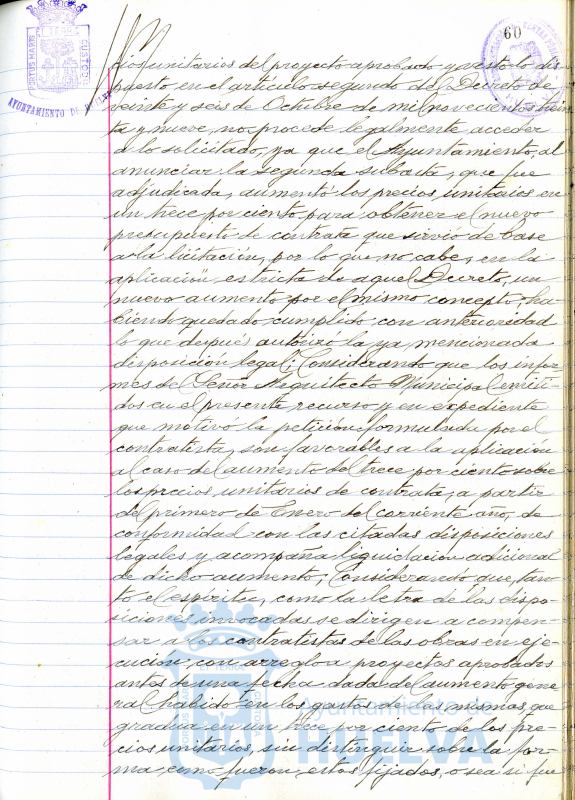 60
PORTUS MARIS
CUSTODIA
AYUNTAMIENTO DE HUELVA
cios unitarios del proyecto aprobado y visto lo dis-
puesto en el artículo segundo del Decreto de
veinte y seis de Octubre de mil novecientos trein
ta y nueve, no procede legalmente acceder
a lo solicitado, ya que el Ayuntamiento, al
anunciar la segunda subasta, que fue
adjudicada, aumentó los precios unitarios en
un trece por ciento para obtener el nuevo
presupuesto de contrata que sirvió de base
a la licitación, por lo que no cabe, en la
aplicación estricta de aquel Decreto, un
nuevo aumento por el mismo concepto, ha
biendo quedado cumplido con anterioridad
lo que después autorizó la ya mencionada
disposición legal; Considerando que los infor-
mes del Señor Arquitecto Municipal emiti-
dos en el presente recurso y en expediente
que motivó la petición formulada por el
contratista, son favorables a la aplicación
al caso del aumento del trece por ciento sobre
los precios unitarios de contrata, a partir
del primero de Enero del corriente año, de
conformidad con las citadas disposiciones
legales y acompaña liquidación adicional
de dicho aumento; Considerando que, tan-
to el espíritu, como la letra de las dispo-
siciones invocadas se dirigen a compen-
sar a los contratistas de las obras en eje-
cución, con arreglo a proyectos aprobados
antes de una fecha dada del aumento gene
ral habido en los gastos de las mismas, que
gradúa en un trece por ciento de los pre-
cios unitarios, sin distinguir sobre la for-
ma como fueron, estos fijados, o sea si fue
Ayuntamiento de
HUELVA